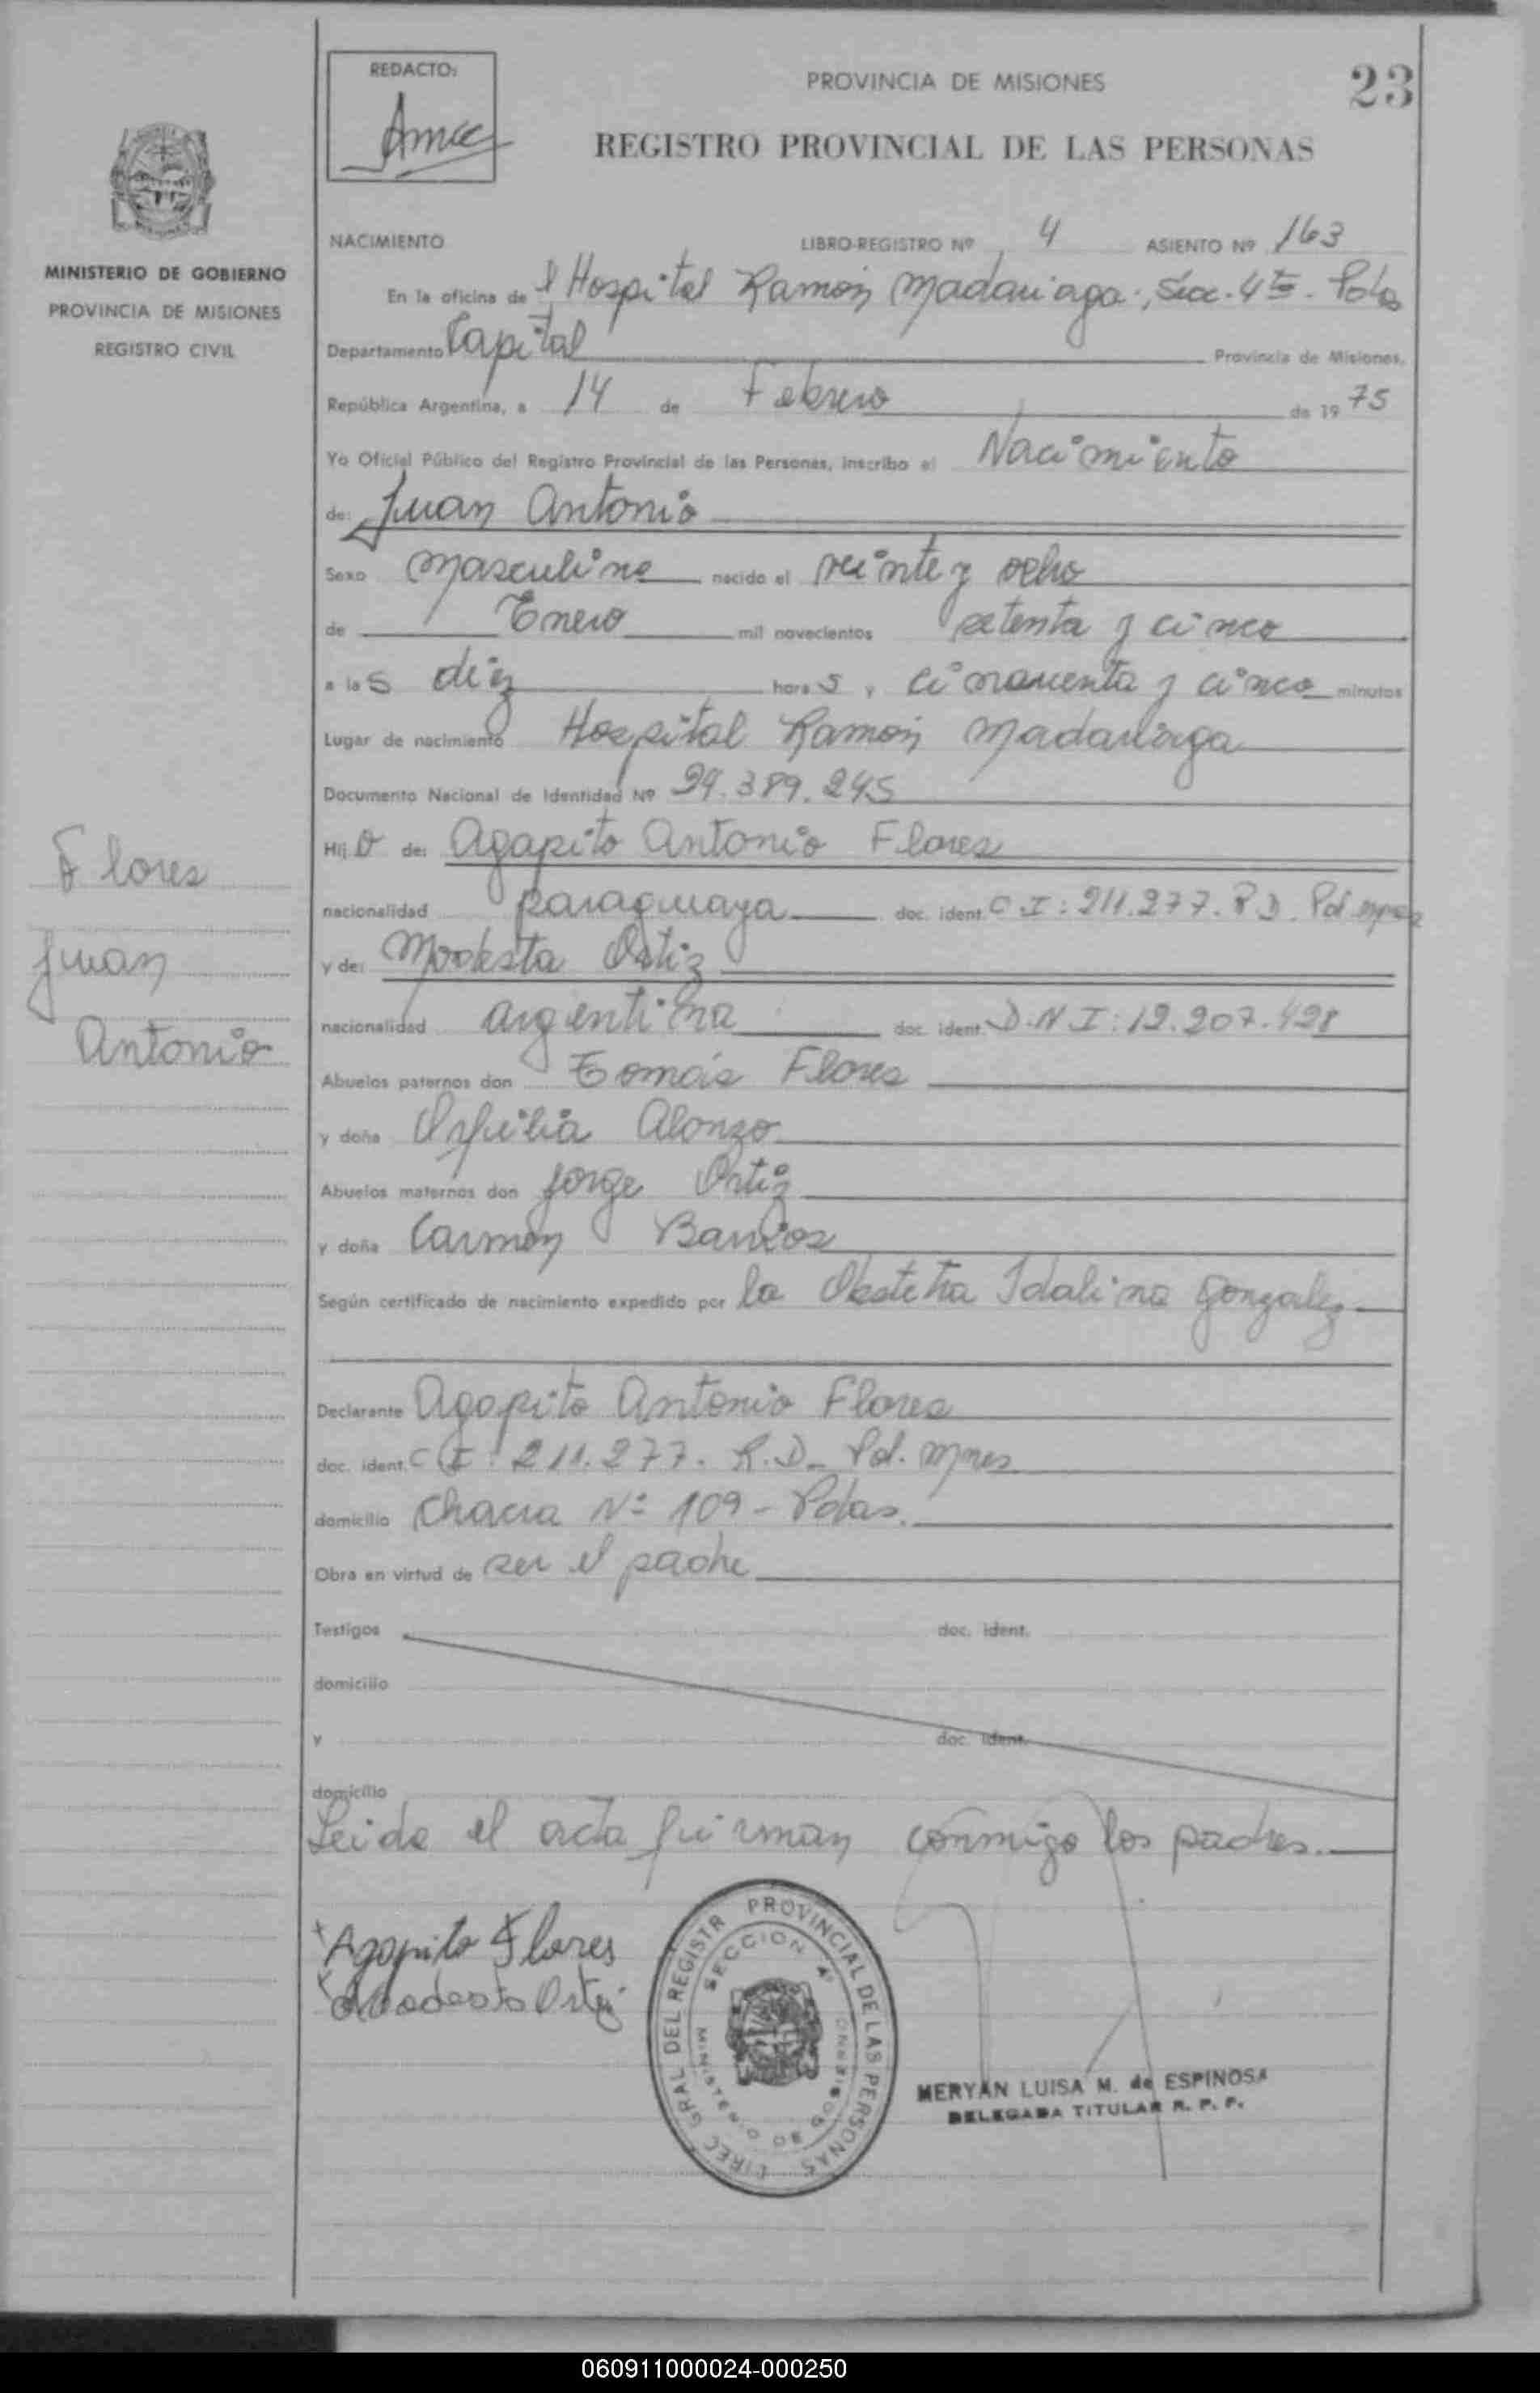 REDACTO:
PROVINCIA DE MISIONES
23
REGISTRO PROVINCIAL DE LAS PERSONAS
MINISTERIO DE GOBIERNO
PROVINCIA DE MISIONES
REGISTRO CIVIL
NACIMIENTO LIBRO-REGISTRO Nº 4 ASIENTO Nº 163
En la oficina de l Hospital Ramón Madariaga, Secc. 4ta. Pdas
Departamento Capital Provincia de Misiones,
República Argentina, a 14 de Febrero de 19 75
Yo Oficial Público del Registro Provincial de las Personas, inscribo el Nacimiento
de: Juan Antonio
Sexo masculino nacido el veinte y ocho
de Enero mil novecientos setenta y cinco
a las diez horas y cincuenta y cinco minutos
Lugar de nacimiento Hospital Ramón Madariaga
Documento Nacional de Identidad Nº 24.389.245
Hijo de: Agapito Antonio Flores
nacionalidad paraguaya doc. ident. C.I: 211.277. R.D. Pol. Mnes
y de: Modesta Ortiz
nacionalidad argentina doc. ident. D.N.I: 12.207.428
Abuelos paternos don Tomás Flores
y doña Orfilia Alonzo
Abuelos maternos don Jorge Ortiz
y doña Carmen Barrios
Según certificado de nacimiento expedido por la Obstetra Idalina Gonzalez
Declarante Agapito Antonio Flores
doc. ident. C.I: 211.277. R.D. Pol. Mnes
domicilio Chacra Nº 109 - Pdas.
Obra en virtud de ser el padre
Testigos doc. ident.
domicilio
y doc. ident.
domicilio
Leida el acta firman conmigo los padres.
Flores
Juan
Antonio
Agapito Flores
Modesta Ortiz
DIREC GRAL DEL REGISTR PROVINCIAL DE LAS PERSONAS
SECCION 4ª
MINISTERIO DE GOBIERNO
MERYAN LUISA M. de ESPINOSA
DELEGADA TITULAR R. P. P.
060911000024-000250